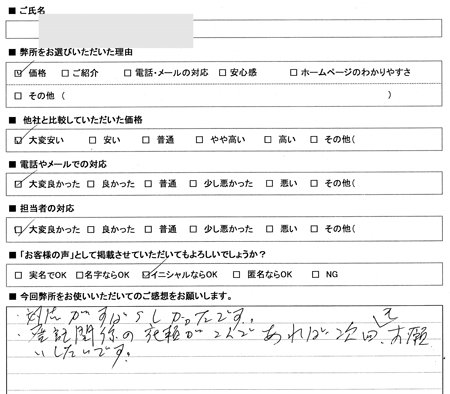 ■ ご氏名
■ 弊所をお選びいただいた理由
☑ 価格 □ ご紹介 □ 電話・メールの対応 □ 安心感 □ ホームページのわかりやすさ
□ その他 ( )
■ 他社と比較していただいた価格
☑ 大変安い □ 安い □ 普通 □ やや高い □ 高い □ その他(
■ 電話やメールでの対応
☑ 大変良かった □ 良かった □ 普通 □ 少し悪かった □ 悪い □ その他(
■ 担当者の対応
☑ 大変良かった □ 良かった □ 普通 □ 少し悪かった □ 悪い □ その他(
■ 「お客様の声」として掲載させていただいてもよろしいでしょうか?
□ 実名でOK □ 名字ならOK ☑ イニシャルならOK □ 匿名ならOK □ NG
■ 今回弊所をお使いいただいてのご感想をお願いします。
・対応がすばらしかったです。
・登記関係の依頼が あれば次回もお願
いしたいです。